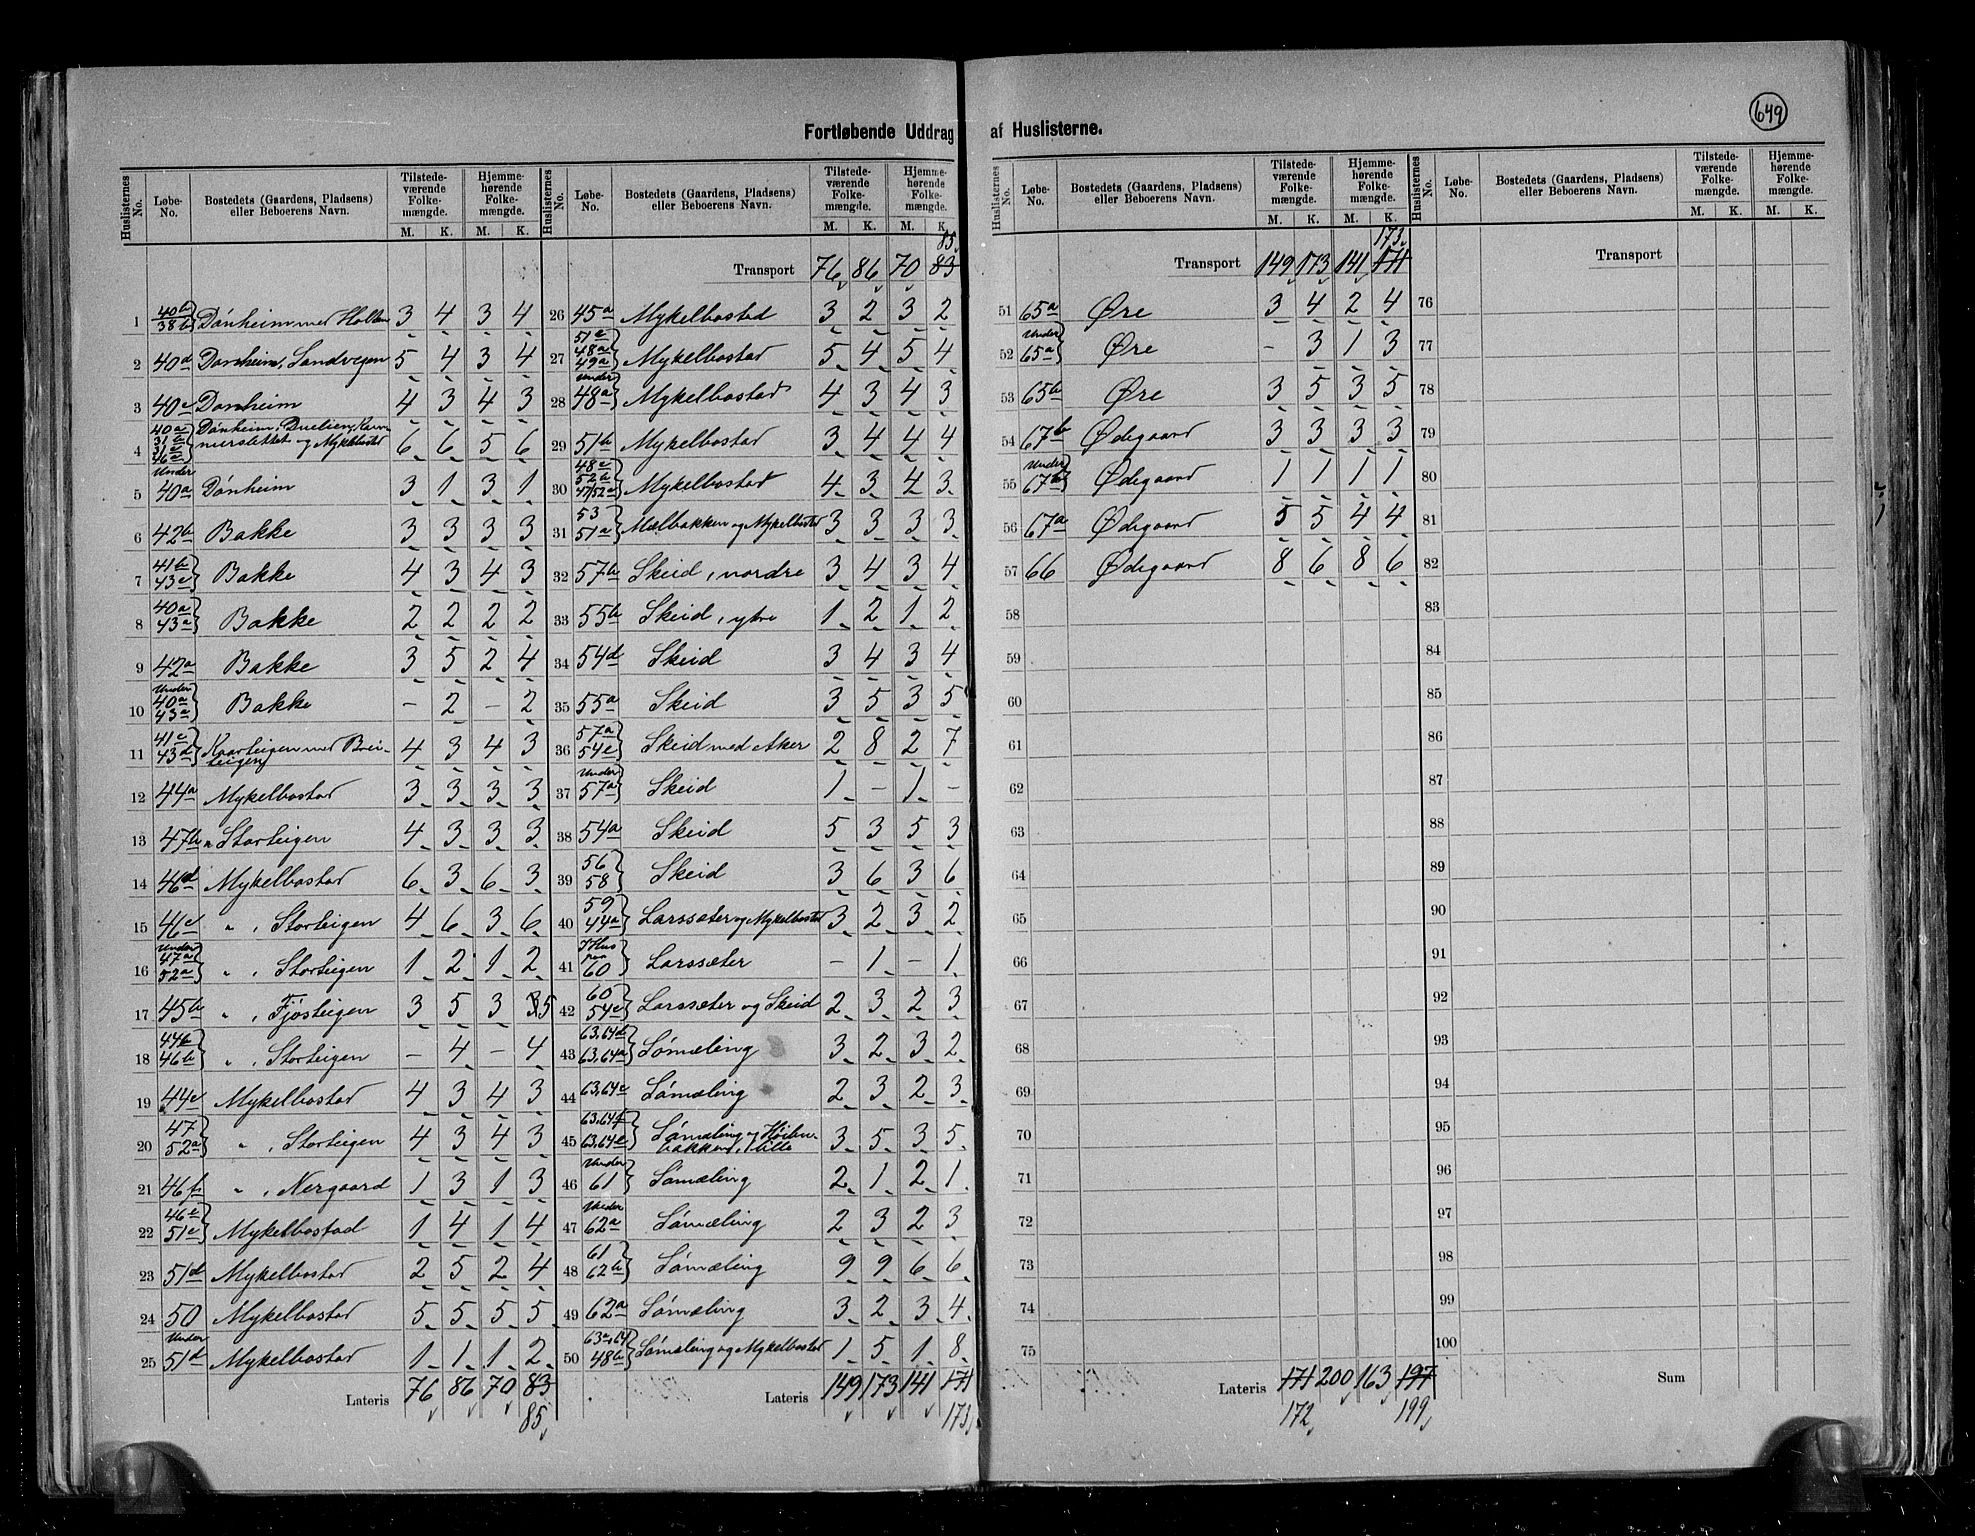 649
Fortløbende Uddrag af Huslisterne.
Huslisternes No. Løbe-No. Bostedets (Gaardens, Pladsens) eller Beboerens Navn. Tilstedeværende Folkemængde. M. K. Hjemmehørende Folkemængde. M. K.
1 40b 38b Dónheim med Holten 3 4 3 4
2 40d Dónheim, Sandvegen 5 4 3 4
3 40c Dónheim 4 3 4 3
4 40a 31b 31c 46c Dónheim, og Mykelbostad 6 6 5 6
5 Under 40a Dónheim 3 1 3 1
6 42b Bakke 3 3 3 3
7 41b 43c Bakke 4 3 4 3
8 40a 43a Bakke 2 2 2 2
9 42a Bakke 3 5 2 4
10 Under 40a 43a Bakke - 2 - 2
11 41c 43d Kaarteigen med Breiteigen 4 3 4 3
12 44a Mykelbostad 3 3 3 3
13 47b " Storteigen 4 3 3 3
14 46d Mykelbostad 6 3 6 3
15 46c " , Storteigen 4 6 3 6
16 Under 47a 52a " , Storteigen 1 2 1 2
17 45b " , Fjósteigen 3 5 3 35
18 44b 46b " , Storteigen - 4 - 4
19 44c Mykelbostad 4 3 4 3
20 47 52a " , Storteigen 4 3 4 3
21 46f " , Nergaard 1 3 1 3
22 46e 51c Mykelbostad 1 4 1 4
23 51d Mykelbostad 2 5 2 4
24 50 Mykelbostad 5 5 5 5
25 Under 51d Mykelbostad 1 1 1 2
Lateris 76 86 70 83
85
Huslisternes No. Løbe-No. Bostedets (Gaardens, Pladsens) eller Beboerens Navn. Tilstedeværende Folkemængde. M. K. Hjemmehørende Folkemængde. M. K.
85
Transport 76 86 70 83
26 45a Mykelbostad 3 2 3 2
27 51e 48a 49a Mykelbostad 5 4 5 4
28 Under 48a Mykelbostad 4 3 4 3
29 51b Mykelbostad 3 4 4 4
30 48c 52b 47/52a Mykelbostad 4 3 4 3
31 53 51a Mælbakken og Mykelbostad 3 3 3 3
32 57b Skeid, nordre 3 4 3 4
33 55b Skeid, ytre 1 2 1 2
34 54d Skeid 3 4 3 4
35 55a Skeid 3 5 3 5
36 57a 54c Skeid med Aker 2 8 2 7
37 Under 57a Skeid 1 - 1 -
38 54a Skeid 5 3 5 3
39 56 58 Skeid 3 6 3 6
40 59 44a Larssæter og Mykelbostad 3 2 3 2
41 I Hus paa 60 Larssæter - 1 - 1
42 60 54e Larssæter og Skeid 2 3 2 3
43 63,64d 63,64a Sómæling 3 2 3 2
44 63,64c Sómæling 2 3 2 3
45 63,64f 63,64e Sómæling og Hóilenbakken, lille 3 5 3 5
46 Under 61 Sómæling 2 1 2 1
47 Under 62a Sómæling 2 3 2 3
48 61 62b Sómæling 9 9 6 6
49 62a Sómæling 3 2 3 4
50 63a,64 48b Sómæling og Mykelbostad 1 5 1 8
Lateris 149 173 141 171
173
Huslisternes No. Løbe-No. Bostedets (Gaardens, Pladsens) eller Beboerens Navn. Tilstedeværende Folkemængde. M. K. Hjemmehørende Folkemængde. M. K.
173
Transport 149 173 141 171
51 65a Øre 3 4 2 4
52 Under 65a Øre - 3 1 3
53 65b Øre 3 5 3 5
54 67b Ødegaard 3 3 3 3
55 Under 67b Ødegaard 1 1 1 1
56 67a Ødegaard 5 5 4 4
57 66 Ødegaard 8 6 8 6
58
59
60
61
62
63
64
65
66
67
68
69
70
71
72
73
74
75
Lateris 171 200 163 197
172 199
Huslisternes No. Løbe-No. Bostedets (Gaardens, Pladsens) eller Beboerens Navn. Tilstedeværende Folkemængde. M. K. Hjemmehørende Folkemængde. M. K.
Transport
76
77
78
79
80
81
82
83
84
85
86
87
88
89
90
91
92
93
94
95
96
97
98
99
100
Sum